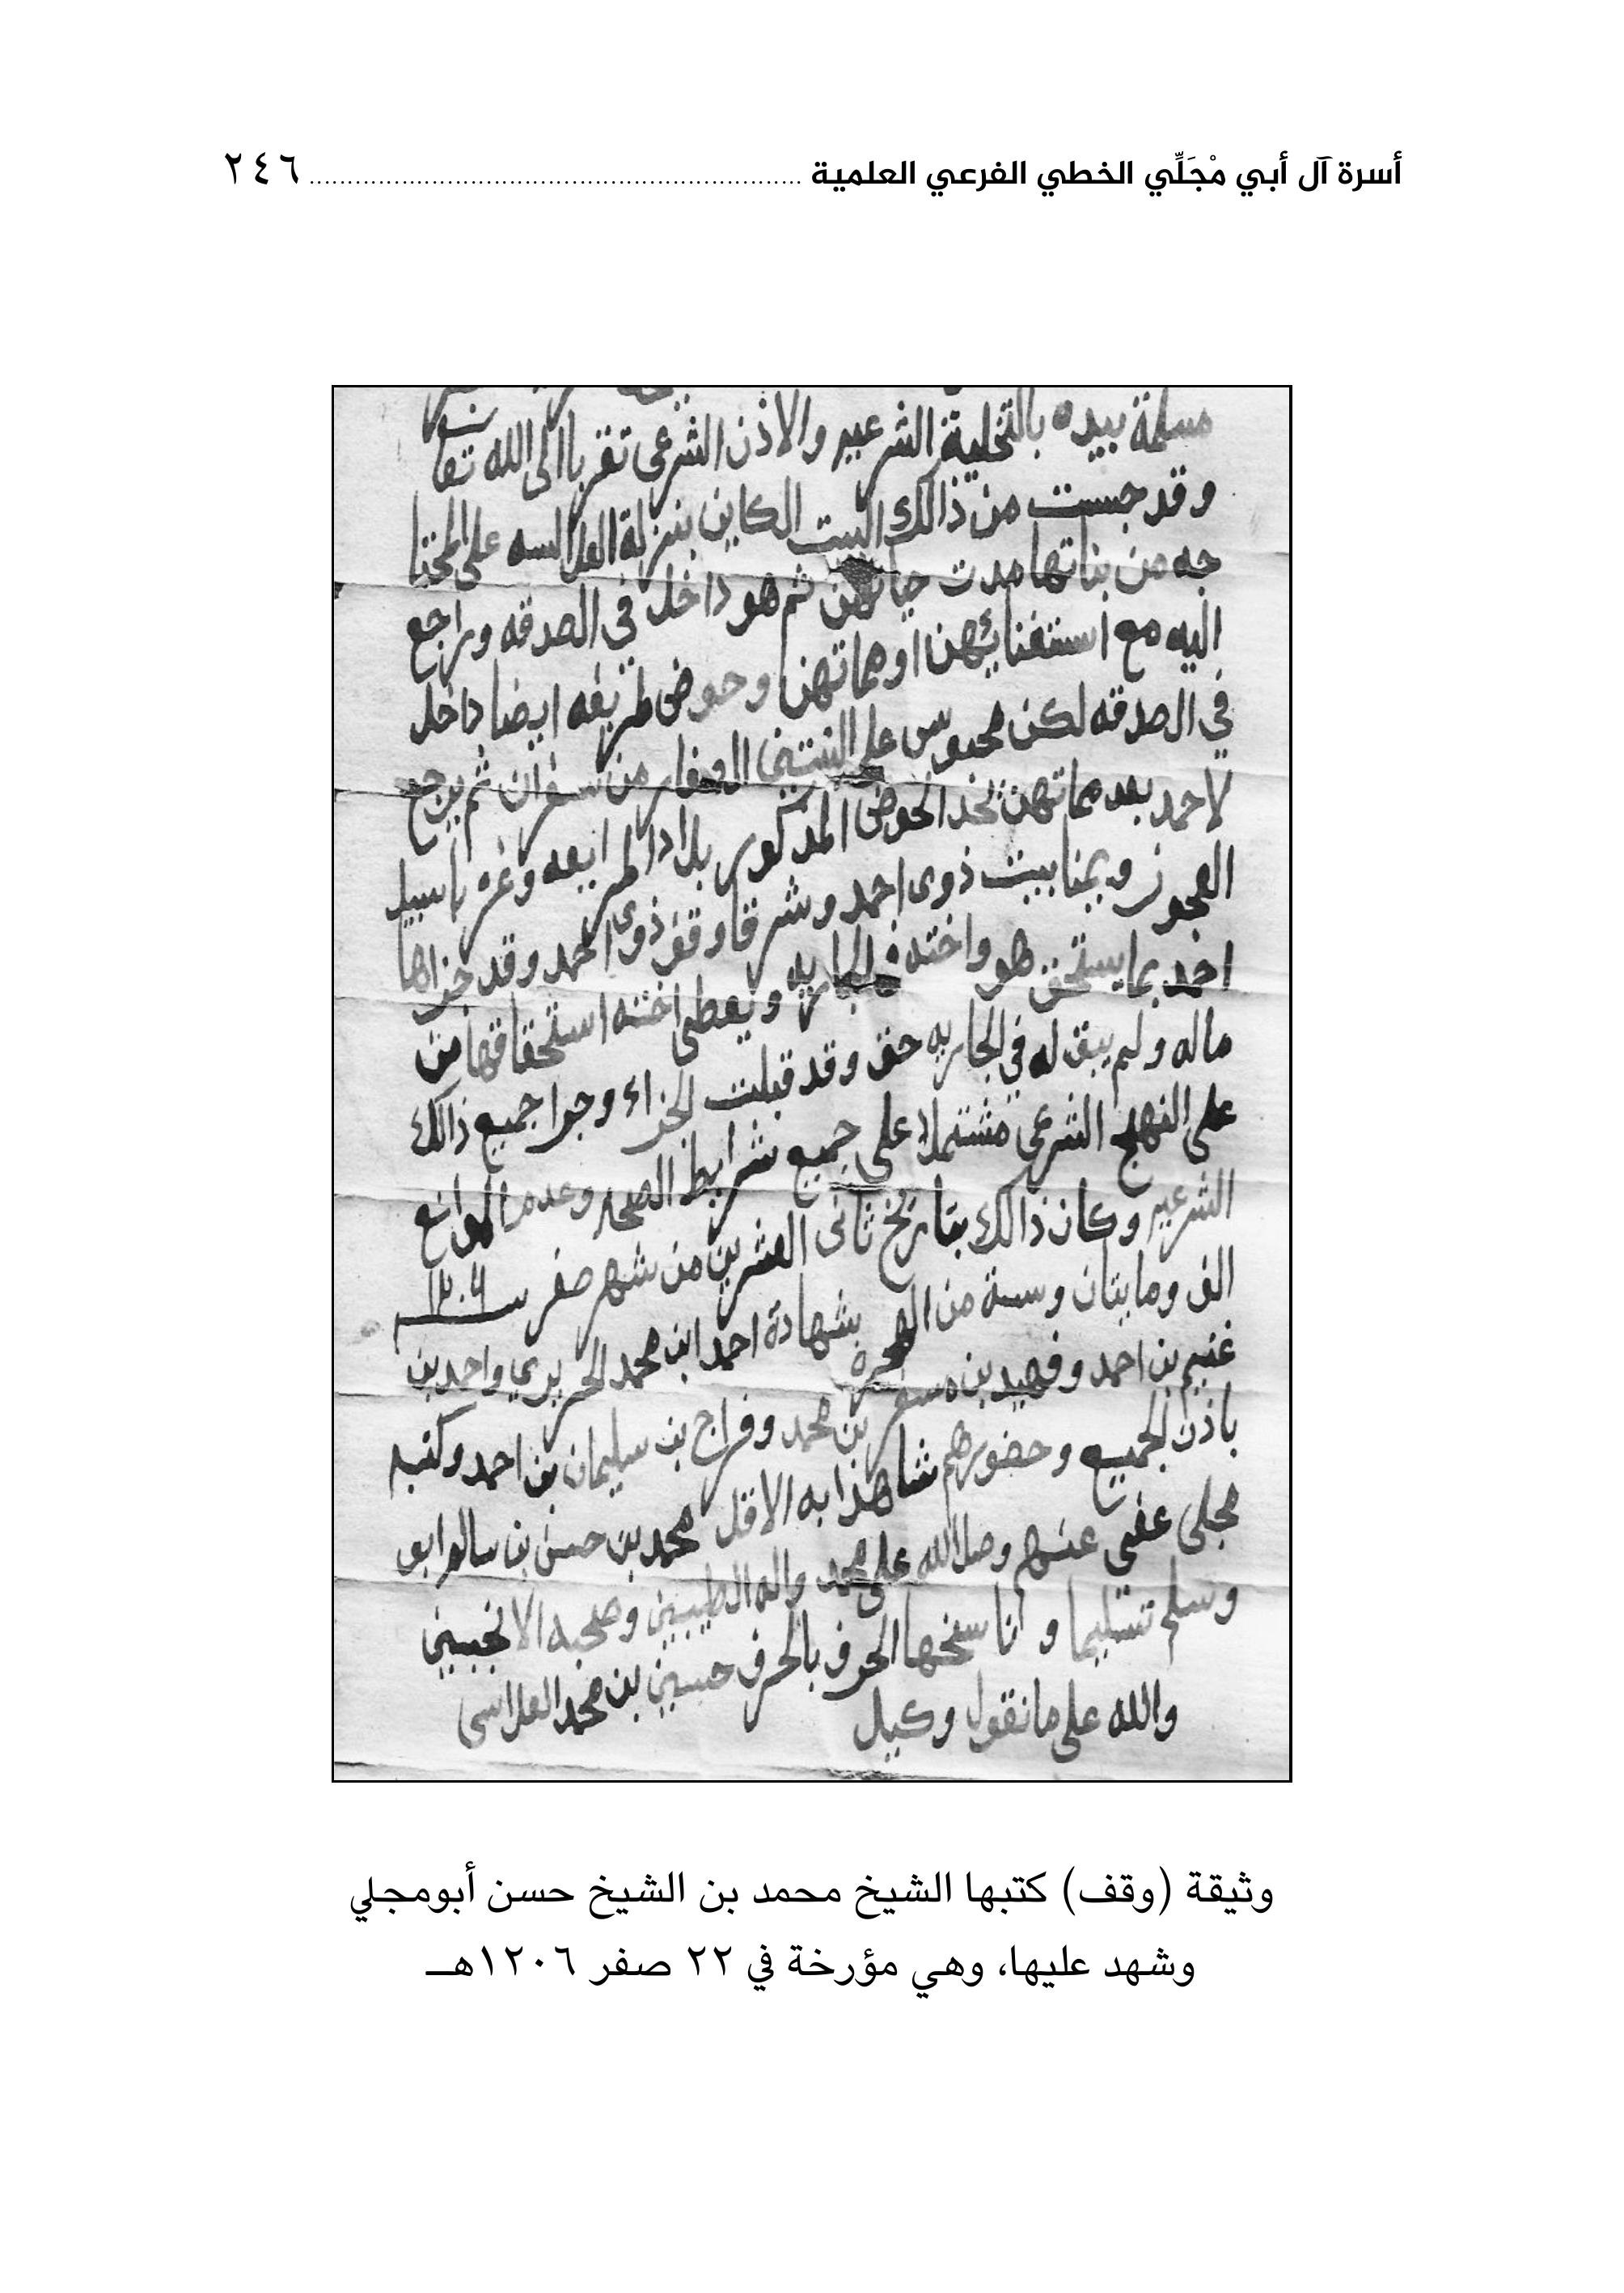 أسرة آل أبي مْجَلِّي الخطي الفرعي العلمية ٢٤٦
مسلمة بيده بالتخلية الشرعيه والاذن الشرعي تقربا الى الله تعا
وقد حبست من ذالك البيت الكاين بنزلة العلالسه على المحتا
جه من بناتها مدت حياتهن ثم هو داخل في الصدقه وراجع
اليه مع استغنائهن او مماتهن وحوض طريفه ايضا داخل
في الصدقه لكن محبوس على البنتين الصغار من سفران ثم يرجع
لاحمد بعد مماتهن يحد الحوض المذكور
العجوز ويمنا ببيت ذوى احمد وشرقا وقف ذوى احمد وقد
احمد بما يستحق هو واخته في الجاريه ويعطي اخته استحقاقها من
ماله ولم يبق له في الجاريه حق وقد قبلت وجرا جميع ذالك
على النهج الشرعي مشتملا على جميع شرايط الصحه وعدم الموانع
الشرعيه وكان ذالك بتاريخ ثانى العشرين من شهر صفر سـ ١٢٠٦
الف ومايتان وستة من الهجرة بشهادة احمد ابن محمد واحمد بن
غنيم بن احمد وفهيد بن مسفر بن محمد وفراج بن سليمان بن احمد وكتبه
باذن الجميع وحضورهم شاهدا به الاقل محمد بن حسن بن سالم ابو
مجلى عفى عنهم وصلا الله على محمد واله الطيبين وصحبه الانجبين
وسلم تسليما و انا سخها الحرف بالحرف حسين بن محمد
والله على ما نقول وكيل
وثيقة (وقف) كتبها الشيخ محمد بن الشيخ حسن أبومجلي
وشهد عليها، وهي مؤرخة في ٢٢ صفر ١٢٠٦هـ